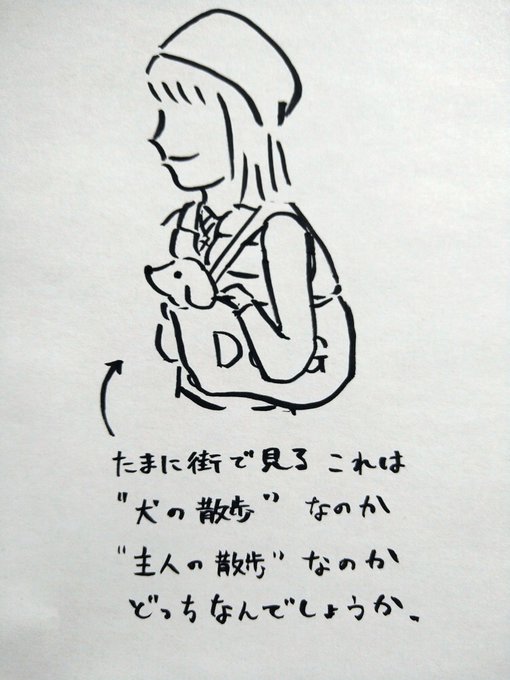 D G
たまに街で見る これは
"犬の散歩" なのか
"主人の散歩" なのか
どっちなんでしょうか。